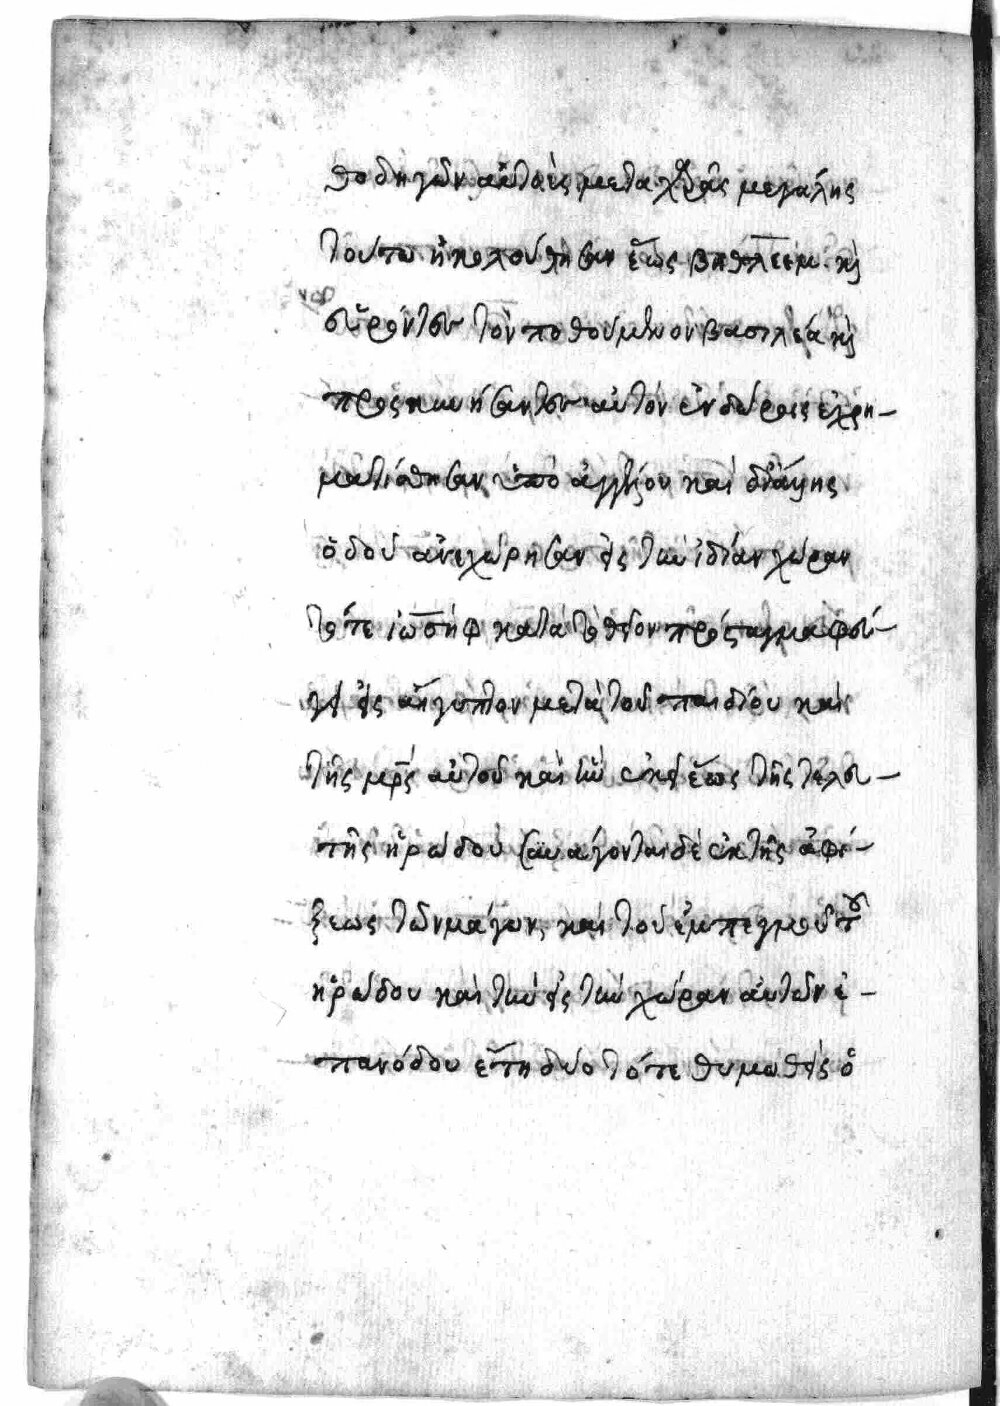 θοδηγῶν αὐτοὺς μετὰ χαρᾶς μεγάλης
τούτω ἠκολούθησαν ἕως βηθλεέμ. κὶ
εὑρόντες τὸν ποθούμενον βασιλέα κὶ
προσκυνήσαντες αὐτὸν ἐν δώροις ἐχρη-
ματίσθησαν ὑπὸ ἀγγέλου καὶ δι' ἄλλης
ὁδοῦ ἀνεχώρησαν εἰς τὴν ἰδίαν χώραν
τότε ἰωσὴφ κατὰ τὸ θεῖον πρόσταγμα φεύ-
γει εἰς αἴγυπτον μετὰ τοῦ παιδίου καὶ
τῆς μρς αὐτοῦ καὶ ἦν ἐκεῖ ἕως τῆς τελευ-
τῆς ἡρώδου συνάγονται δὲ ἐκ τῆς ἀφί-
ξεως τῶν μάγων, καὶ τοῦ ἐμπεγμοῦ τοῦ
ἡρώδου καὶ τὴν εἰς τὴν χώραν αὐτῶν ἐ-
πανόδου ἔτη δύο τότε θυμωθεὶς ὁ